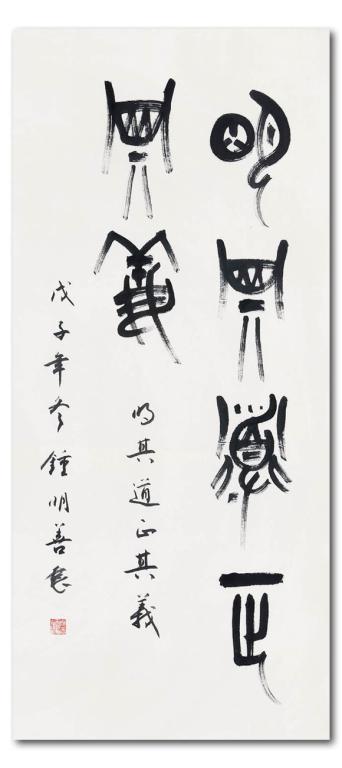 明其道正
其義
明其道正其義
戊子年冬鍾明善書